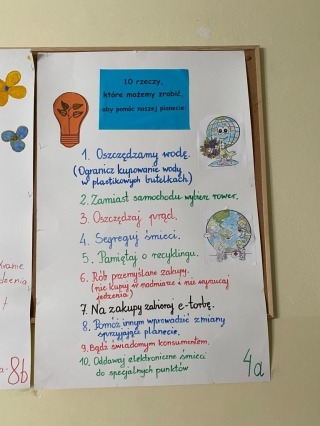 10 rzeczy,
które możemy zrobić,
aby pomóc naszej planecie
1. Oszczędzamy wodę.
(Ogranicz kupowanie wody
w plastikowych butelkach)
2. Zamiast samochodu wybierz rower.
3. Oszczędzaj prąd.
4. Segreguj śmieci.
5. Pamiętaj o recyklingu.
6. Rób przemyślane zakupy.
(nie kupuj w nadmiarze i nie wyrzucaj
jedzenia)
7. Na zakupy zabieraj e-torbę.
8. Pomóż innym wprowadzić zmiany
sprzyjające planecie.
9. Bądź świadomym konsumentem.
10. Oddawaj elektroniczne śmieci
do specjalnych punktów
4a
8b